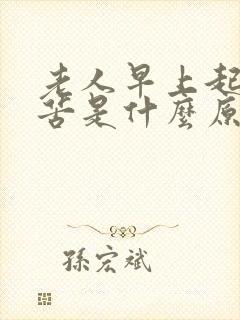 老人早上起
苦是什麼原
孫宏斌